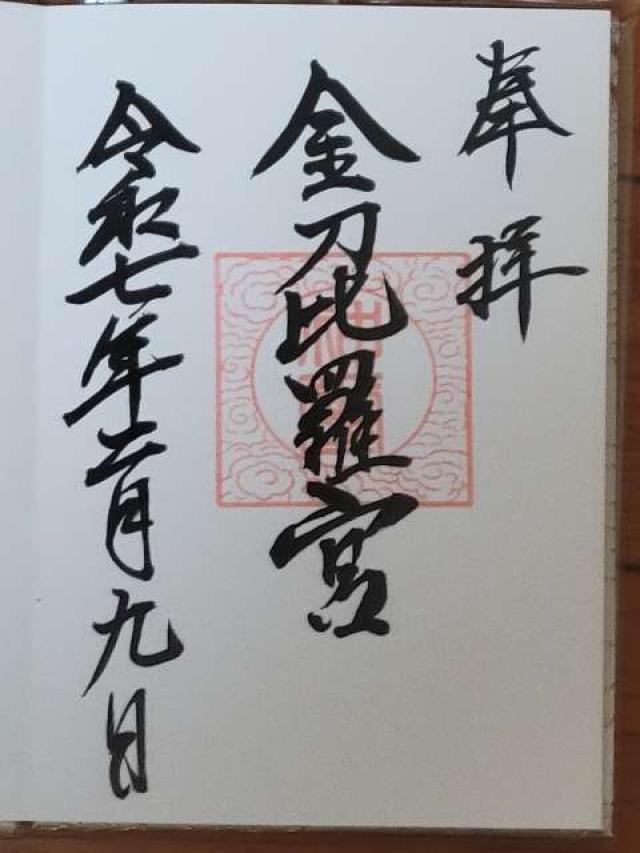 奉拝
金刀比羅宮
令和七年二月九日